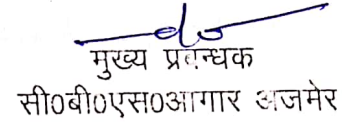 मुख्य प्रबन्धक
सी0बी0एस0आगार अजमेर